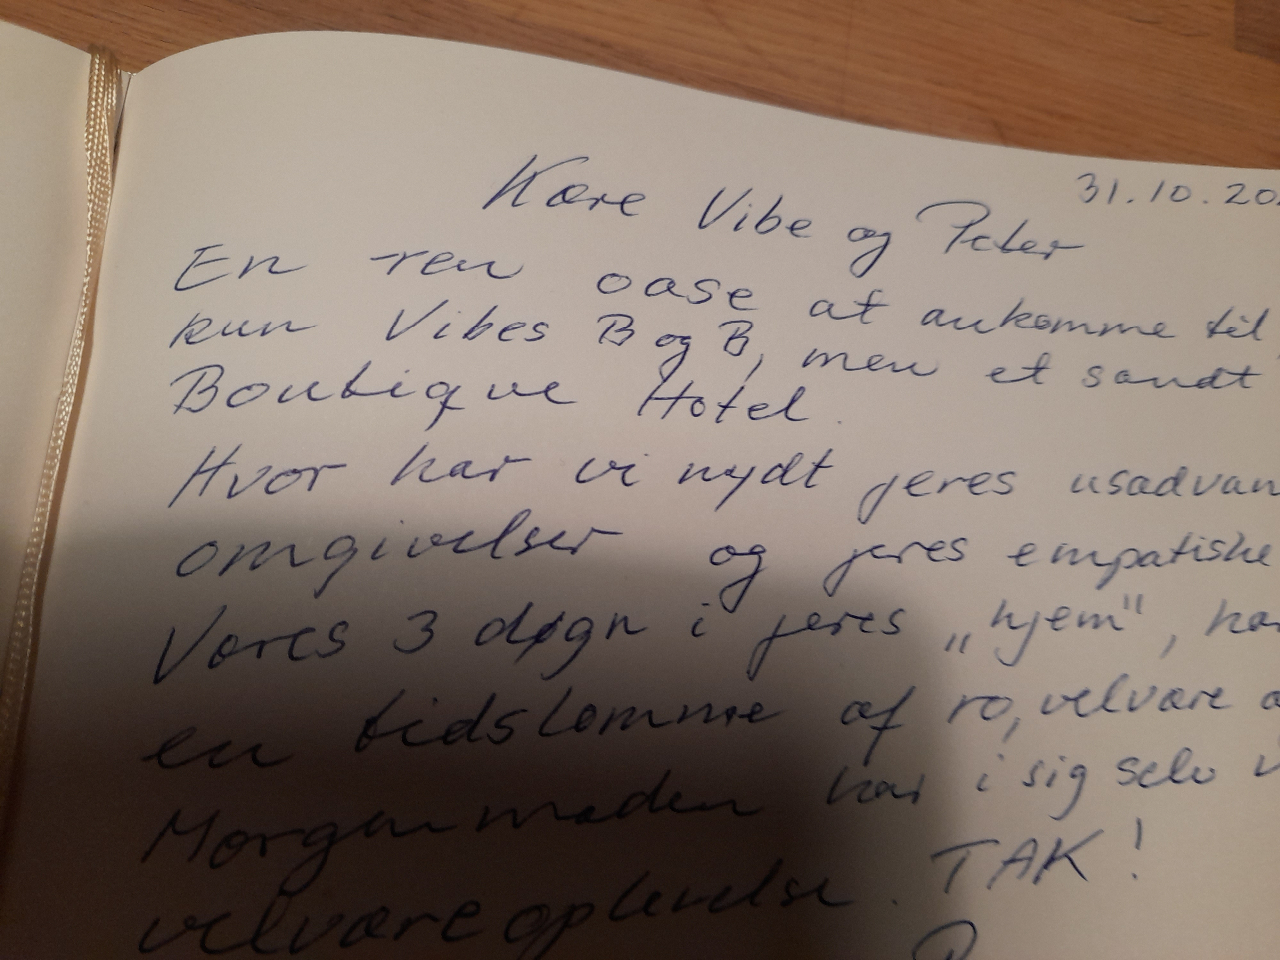 31.10.20
Kære Vibe og Peter
En ren oase at ankomme til
kun Vibes B og B, men et sandt
Boutique Hotel.
Hvor har vi nydt jeres usædvan
omgivelser og jeres empatiske
Vores 3 døgn i jeres „hjem", har
en tidslomme af ro, velvære
Morgenmaden har i sig selv
velværeoplevelse. TAK!